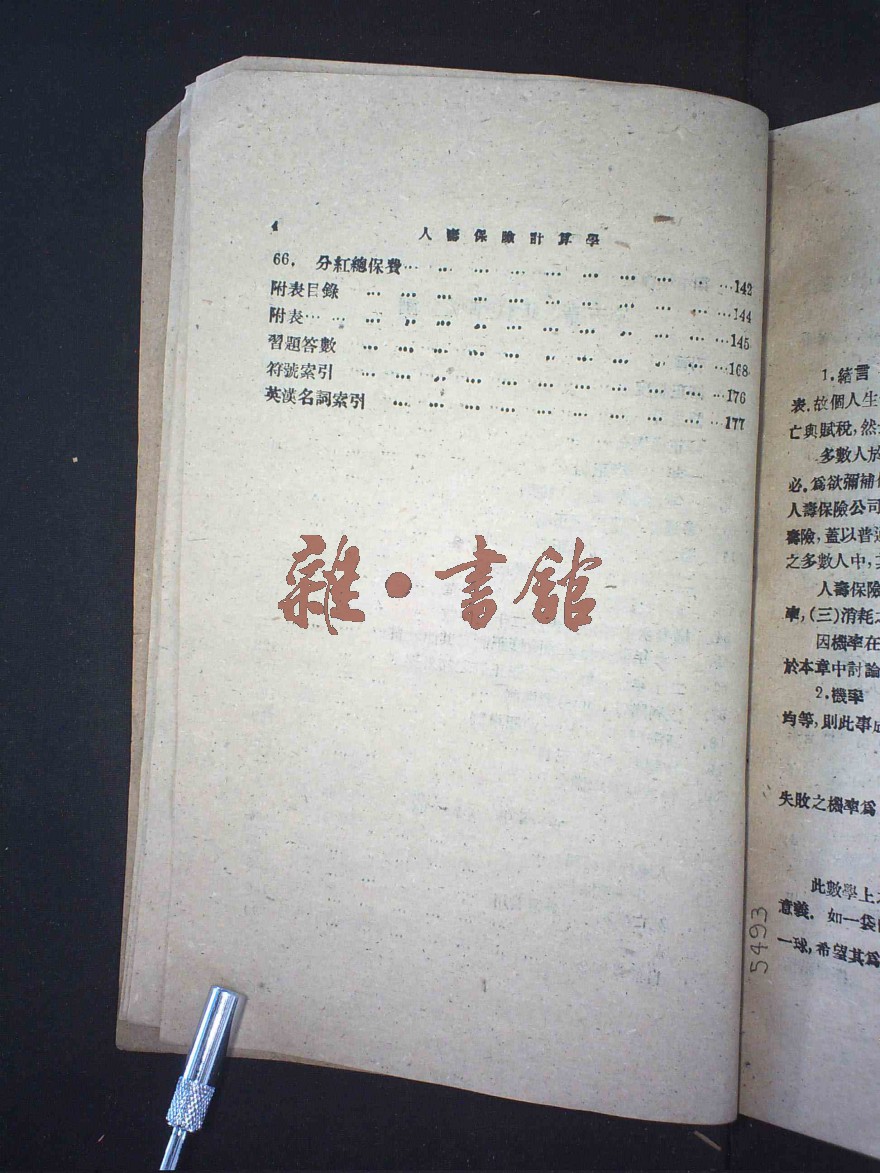 4
人壽保險計算學
66. 分紅總保費… … … … … … … … … …142
附表目錄 … … … … … … … … … …144
附表… … … … … … … … … … …145
習題答數 … … … … … … … … … …168
符號索引 … … … … … … … … … …176
英漢名詞索引 … … … … … … … … …177
雜·書館
1. 緒言
表.故個人生
亡與賦稅,然
多數人於
必.爲欲彌補
人壽保險公司
壽險,蓋以普通
之多數人中,
人壽保險
率,(三)消耗之
因機率在
於本章中討論
2.機率
均等,則此事
失敗之機率爲
此數學上
意義. 如一袋
一球,希望其爲
5493